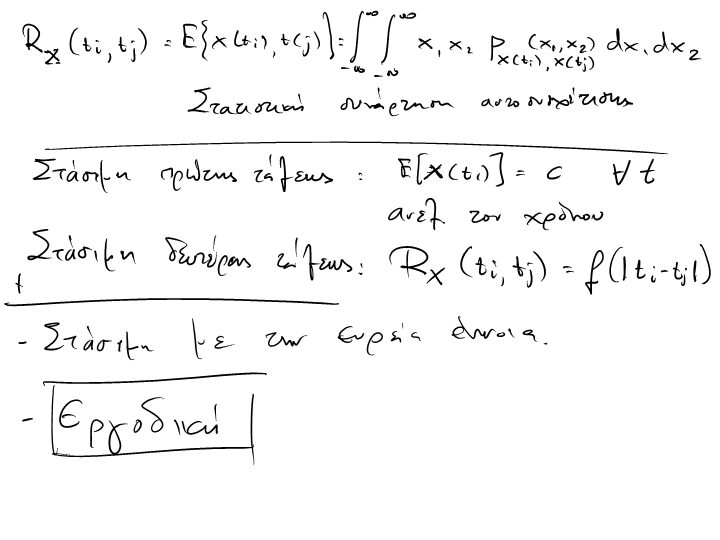 R_X (ti, tj) = E{x(ti), t(j)} = ∫_{-∞}^{∞} ∫_{-∞}^{∞} x₁ x₂ p_{x(ti), x(tj)} (x₁, x₂) dx₁ dx₂
Στατιστική συνάρτηση αυτοσυσχέτισης
Στάσιμη πρώτης τάξεως : E[x(ti)] = c ∀ t
ανεξ του χρόνου
Στάσιμη δευτέρας τάξεως: R_X (ti, tj) = f(|ti-tj|)
+
- Στάσιμη με την ευρεία έννοια.
- Εργοδική